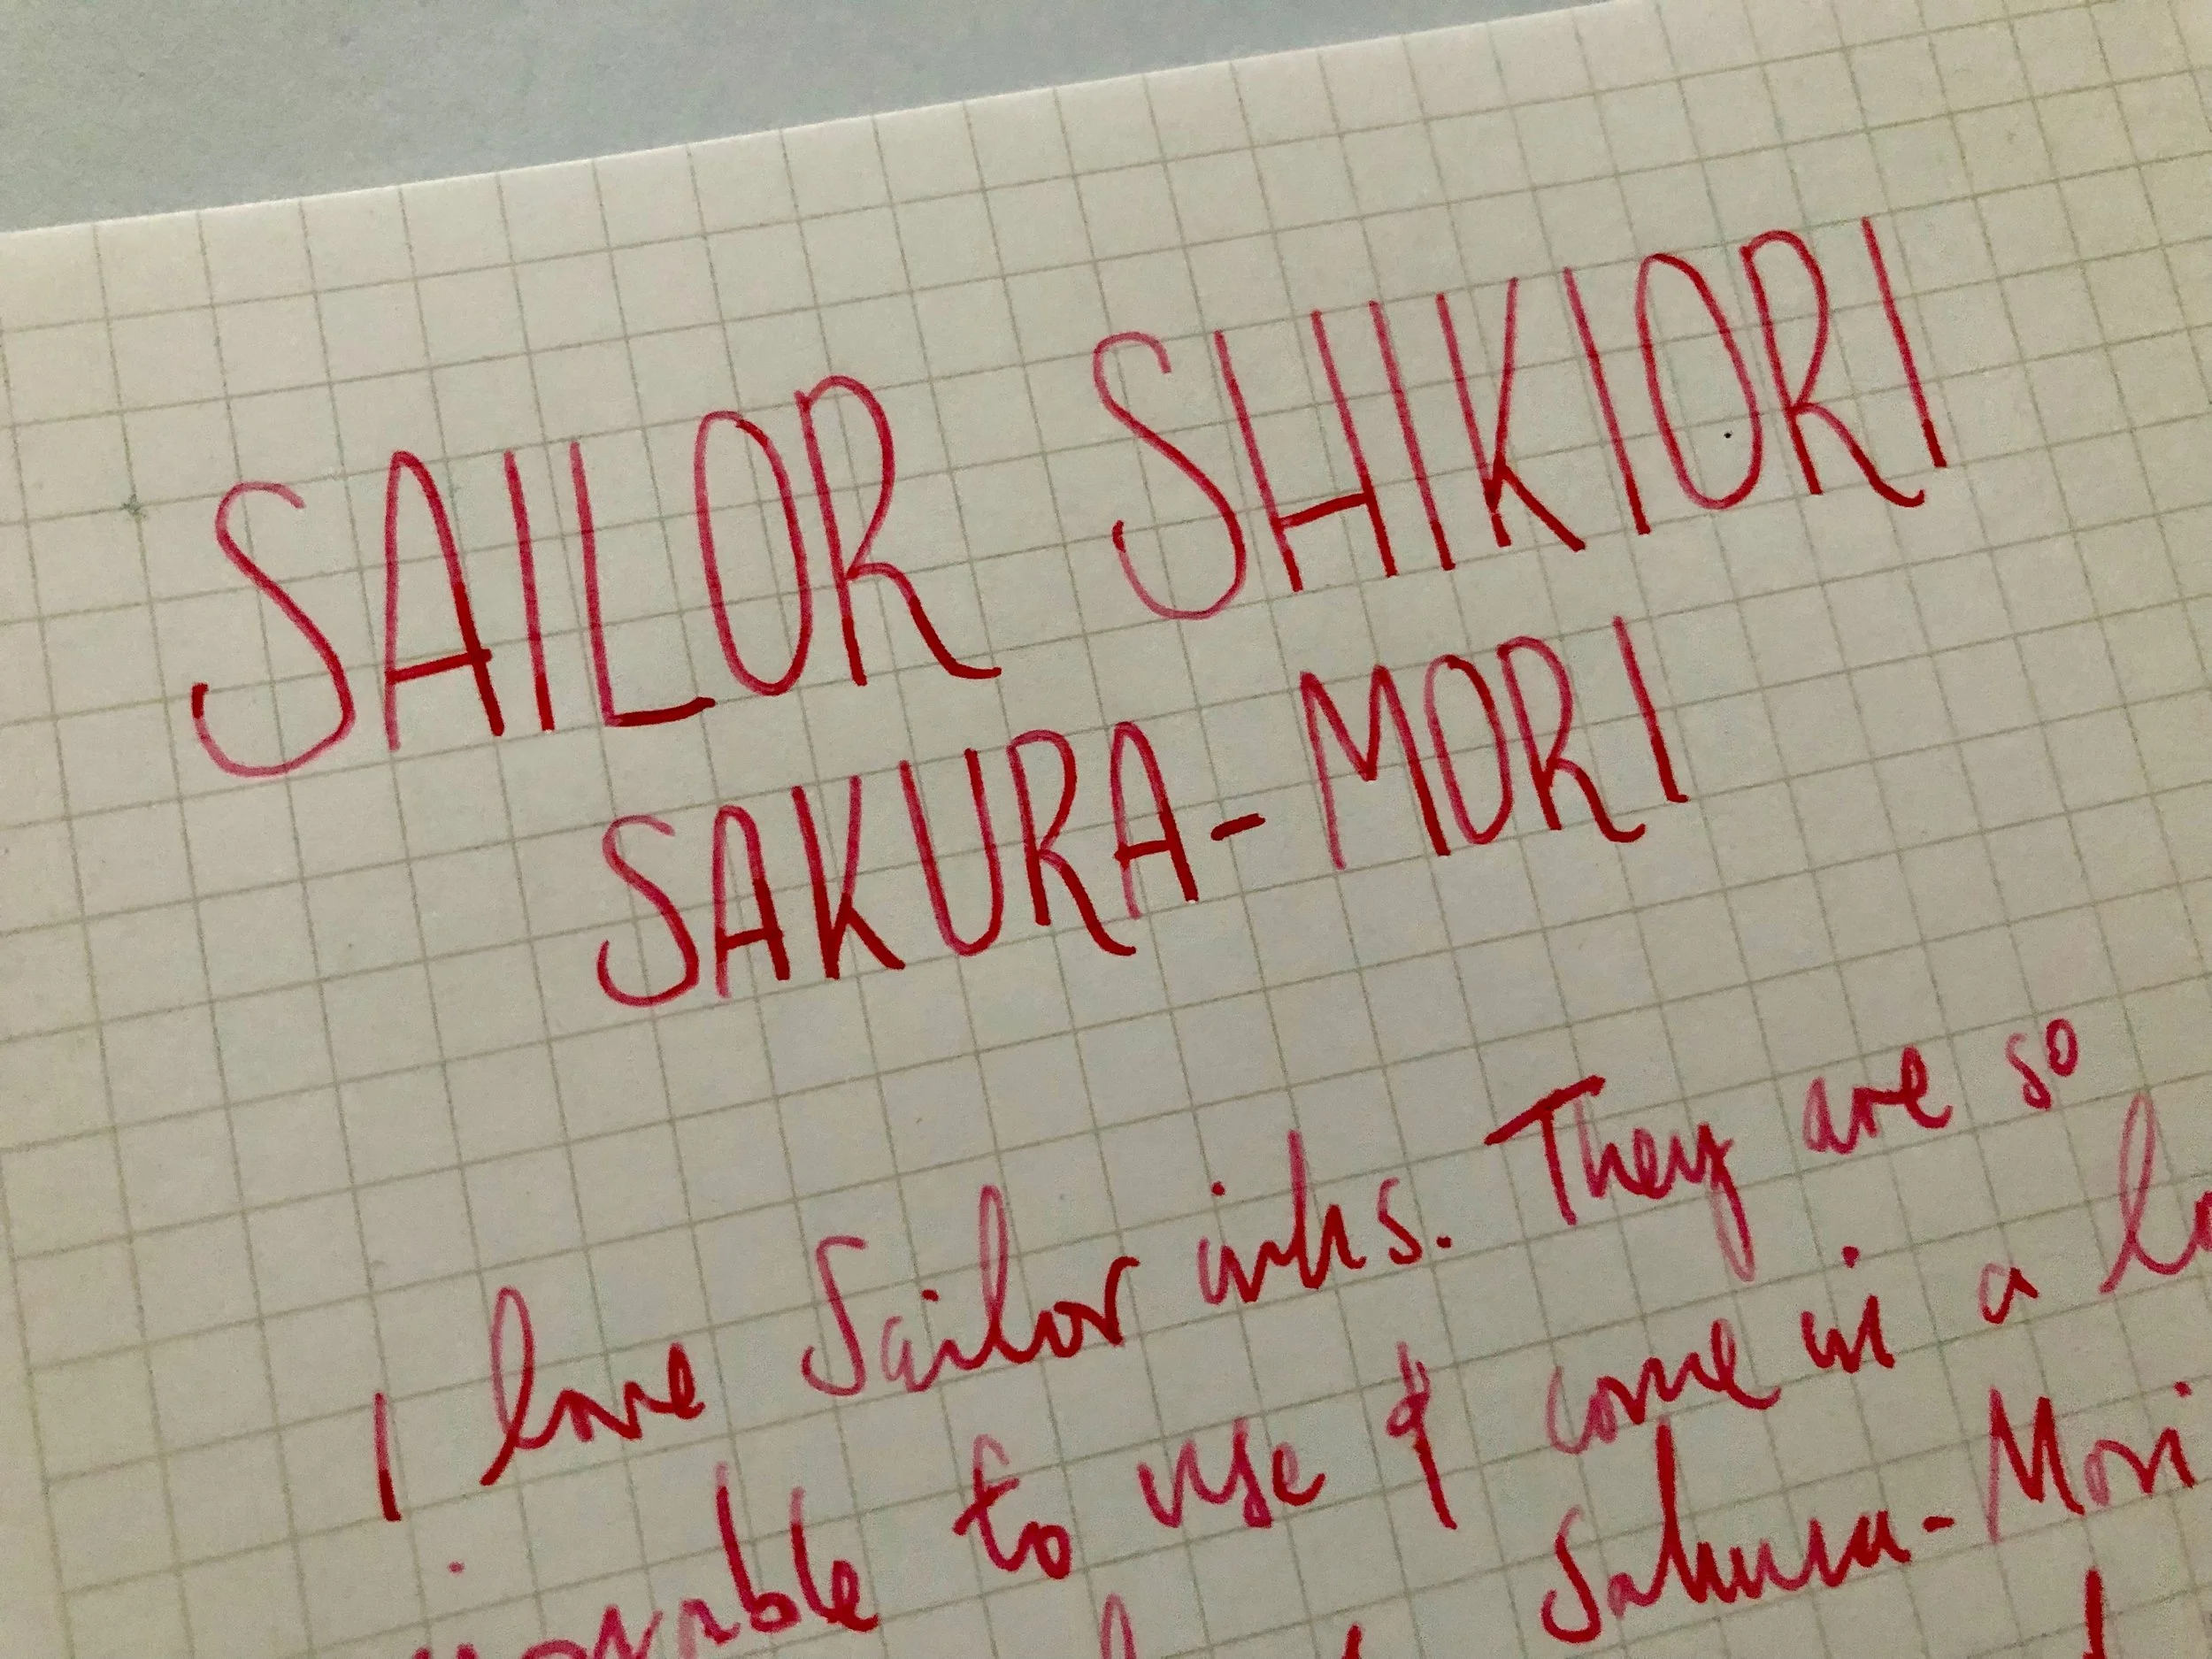 SAILOR SHIKIORI
SAKURA-MORI
I love Sailor inks. They are so
to use & come in a
Sakura-Mori